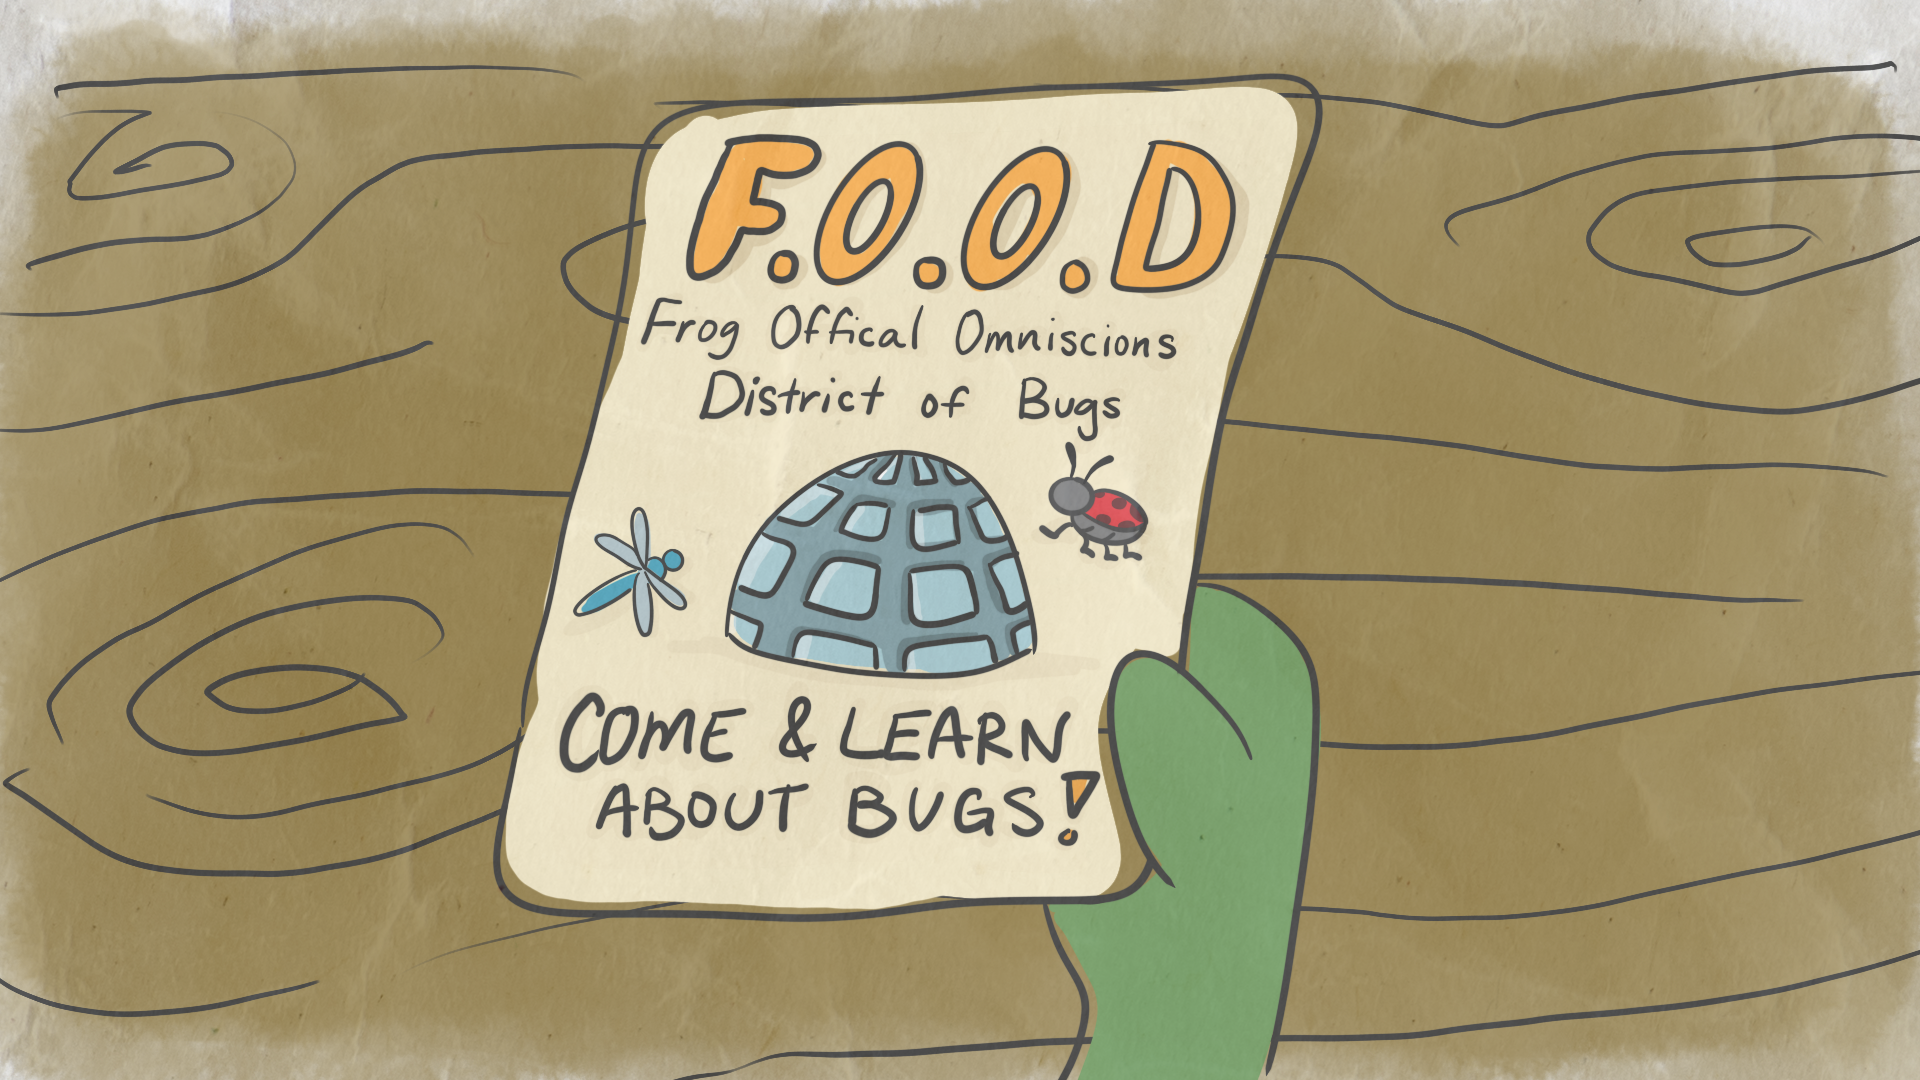 F.O.O.D
Frog Offical Omniscions
District of Bugs
COME & LEARN
ABOUT BUGS!